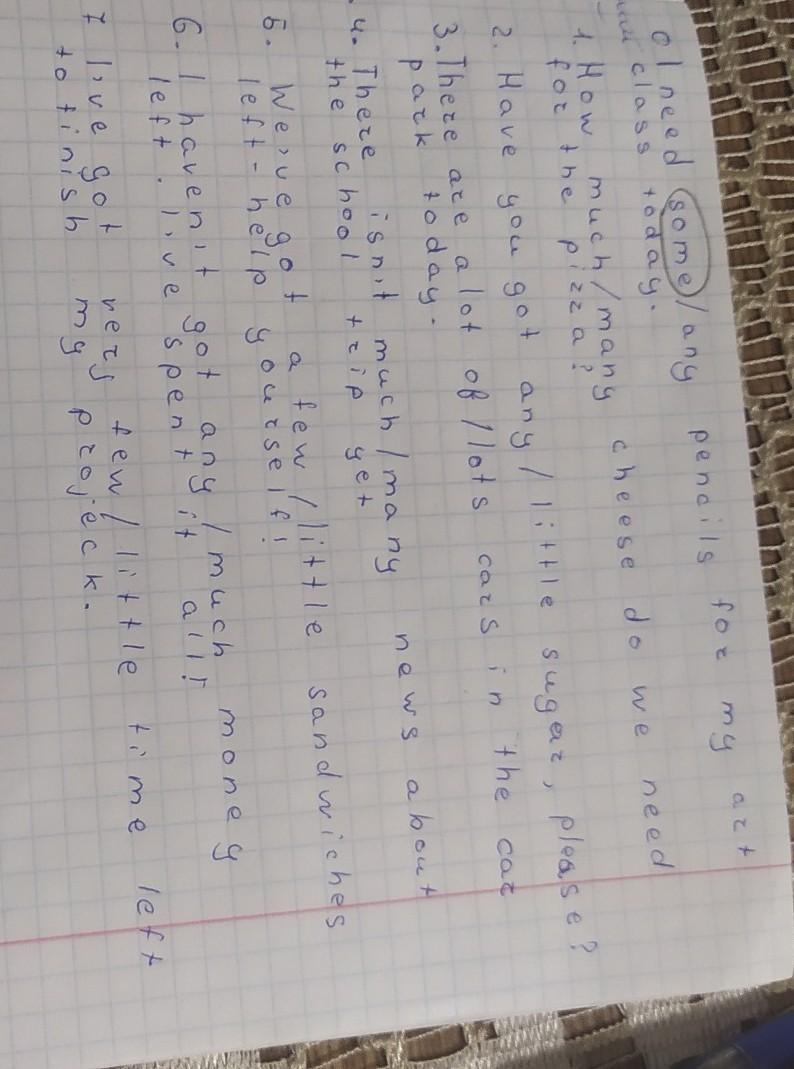 0 I need some/any pencils for my art
class today.
1. How much/many cheese do we need
for the pizza?
2. Have you got any/little sugar, please?
3. There are a lot of/lots cars in the car
park today.
4. There isn't much/many news about
the school trip yet
5. We've got a few/little sandwiches
left - help yourself!
6. I haven't got any/much money
left. I've spent it all!
7 I've got very few/little time left
to finish my projeck.